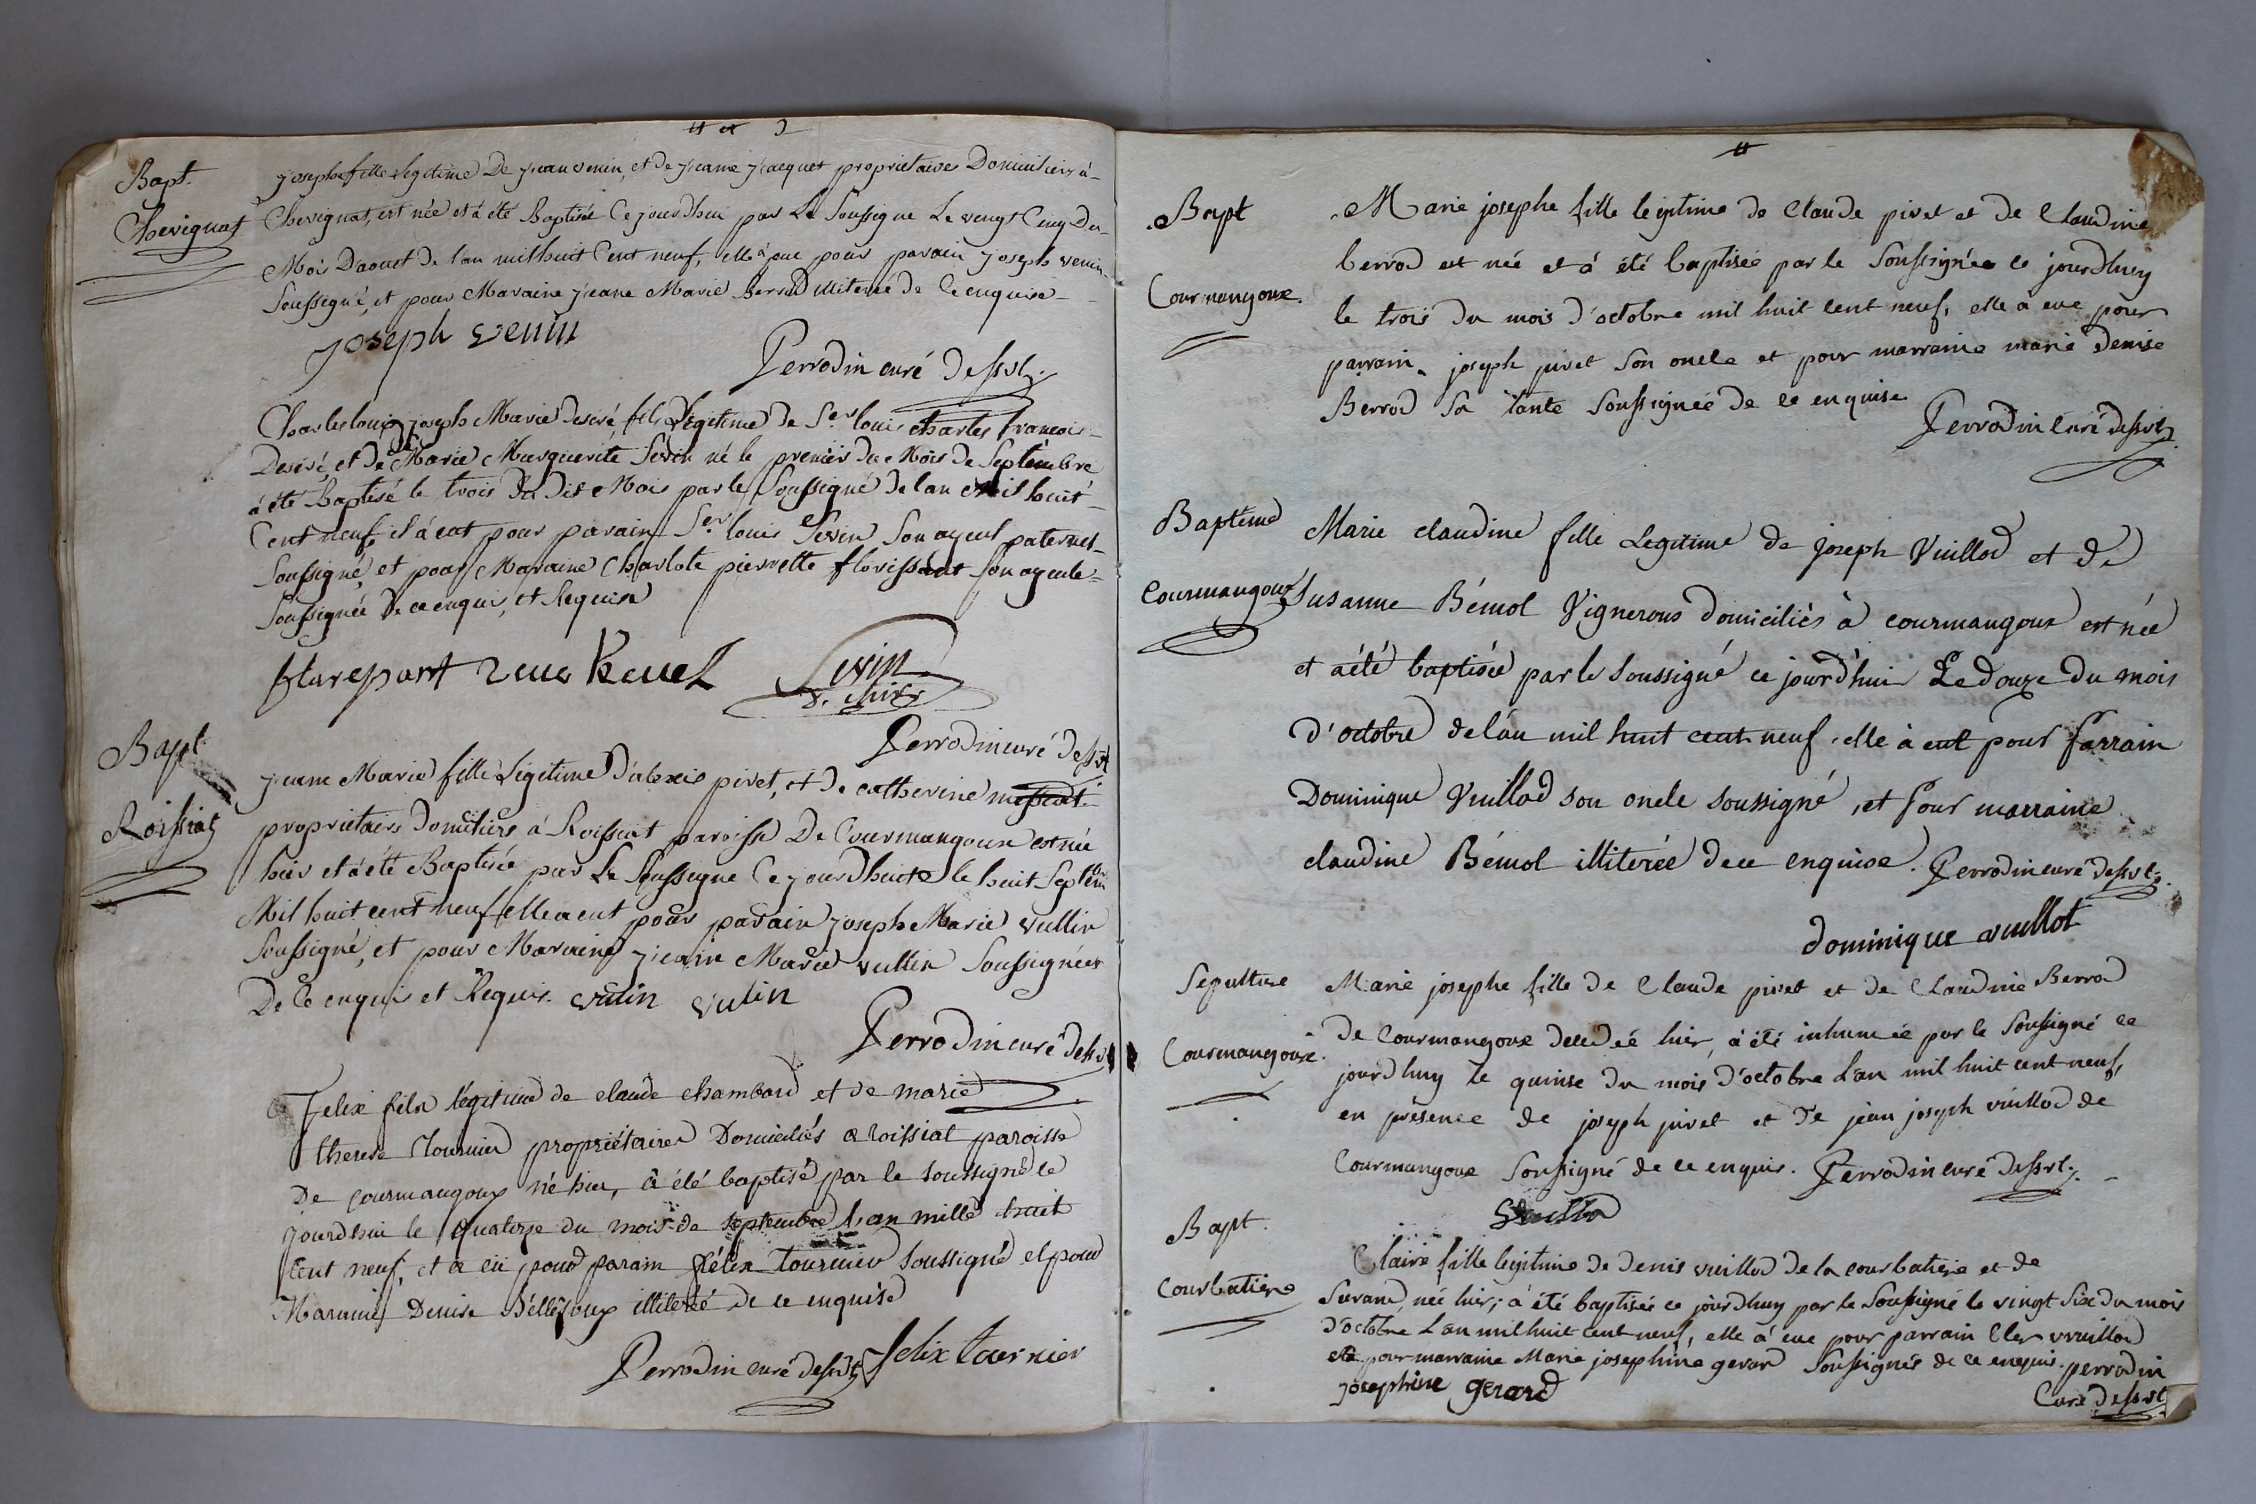 Bapt.
Chevignat
josephe fille legitime De jean venin, et de jeanne jacquet proprietaires Domiciliers à
Chevignat, est née et à été Baptisée Ce jourdhui par Le Soussigne Le vengt Cinq Du
Mois D'aoust de l'an mil huit Cent neuf, elle à eue pour parain joseph venin
Soussigné, et pour Maraine jeane Marie Berrod illiteree de Ce enquise
Joseph venin
Perrodin curé dessvt
Charles louis joseph Marie desiré fils Légitime de Sr louis charles francois
Desiré, et de Marie Marguerite Sevin né le premier du Mois de Septembre
à été Baptisé le trois du dit Mois par le Soussigné de l'an Mil huit
Cent neuf, il à eut pour parain Sr louis Sevin Son ayeul paternel
Soussigné, et pour Maraine Charlote pierrette florissant Son ayeule
Soussignée De ce enquis, et Requise
Sevin
Perrodin curé dessvt
Bapt
Roissiat
jeane Marie fille Légitime D'alexis pivet, et de catherine
proprietaires Domiciliers à Roissiat paroisse De Courmangoux est née
hier et à été Baptisée par Le Soussigne Ce jourdhuit le huit Septem
Mil huit cent neuf elle a eut pour parain joseph Marie vullin
Soussigné, et pour Maraine jeane Marie vullin Soussignées
De Ce enquis et Requis. vulin vulin
Perrodin curé dessv
Felix fils légitime de claude chambard et de marie
therese Tournier propriétaires Domiciliés a roissiat paroisse
De courmangoux né hier, à été baptisé par le soussigné le
jourdhui le quatorze du mois de septembre l'an mille huit
Cent neuf, et a eu pour parain félix Tournier soussigné et pour
Maraine Denise Bélletoux illiterée de ce enquise
Perrodin curé dessvt felix tournier
Bapt
Courmangoux.
Marie josephe fille legitime de Claude pivet et de Claudine
berrod est née et à été baptisée par le Soussignée ce jourdhuy
le trois du mois d'octobre mil huit cent neuf, elle à eue pour
parrain joseph pivet Son oncle et pour marraine marie Denise
Berrod Sa tante Soussignée de ce enquise
Perrodin Curé dessvt
Baptême
Courmangoux
Marie claudine fille Legitime de Joseph Vuillod et de
Susanne Bémol Vignerons domiciliés à courmangoux est née
et a été baptisée par le soussigné ce jourd'hui Le douze du mois
d'octobre de l'an mil huit cent neuf, elle à eut pour parrain
Dominique Vuillod son oncle soussigné, et pour marraine
claudine Bémol illiterée de ce enquise. Perrodin curé dessvt.
dominique vuillot
Sepulture
Courmangoux.
Marie josephe fille de Claude pivet et de Claudine Berrod
de Courmangoux decedeé hier, à été inhumeé par le Soussigné ce
jourdhuy le quinse du mois d'octobre L'an mil huit cent neuf,
en présence de joseph pivet et de jean joseph vuillod de
Courmangoux Soussigné de ce enquis. Perrodin curé dessvt.
Vuillod
Bapt.
Courbatiere
Claire fille legitime de denis vuillod de la courbatiere et de
Surand, née hier; à été baptisée ce jourdhuy par le Soussigné le vingt Six du mois
d'octobre L'an mil huit cent neuf, elle à eue pour parrain Cler vvuillod
et pour marraine Marie josephine gerard Soussignés de ce enquis. perrodin
Curé dessvt
josephine gerard